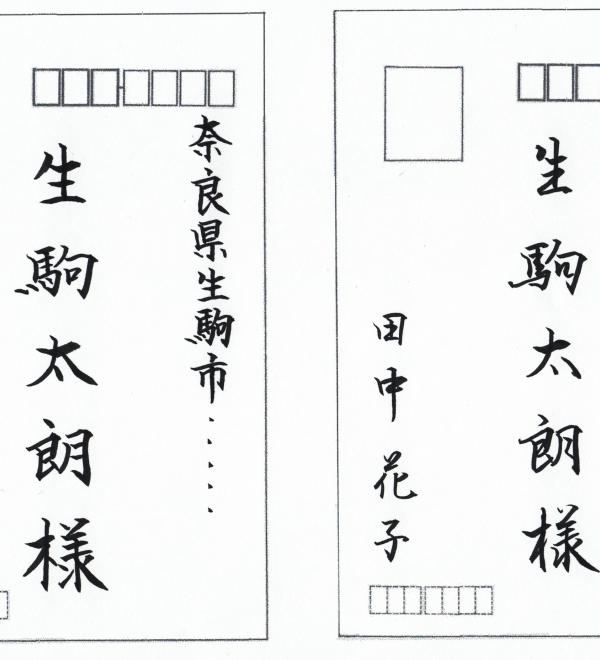 奈良県生駒市・・・・・
生駒太朗様
生駒太朗様
田中花子